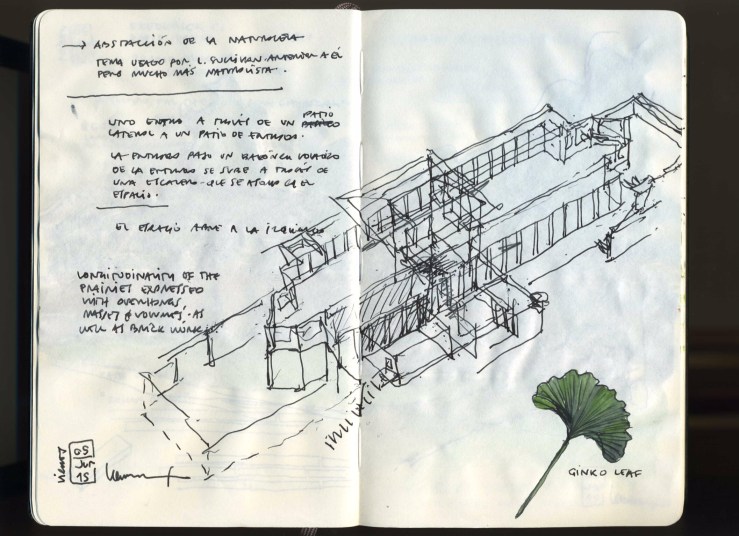 → ABSTRACCIÓN DE LA NATURALEZA
TEMA USADO POR L. SULLIVAN ANTERIOR A ÉL
PERO MUCHO MÁS NATURALISTA.
UNO ENTRA A TRAVÉS DE UN PATIO
LATERAL A UN PATIO DE ENTRADA.
LA ENTRADA BAJO UN BALCÓN VOLADO
DE LA ENTRADA SE SUBE A TRAVÉS DE
UNA ESCALERA QUE SE ASOMA EN EL
ESPACIO.
EL ESPACIO ABRE A LA IZQUIERDA
LONGITUDINALITY OF THE
PRAIRIE EXPRESSED
WITH OVERHANGS,
MASSES & VOLUMES. AS
WELL AS BRICK WORK
09
15
GINKO LEAF